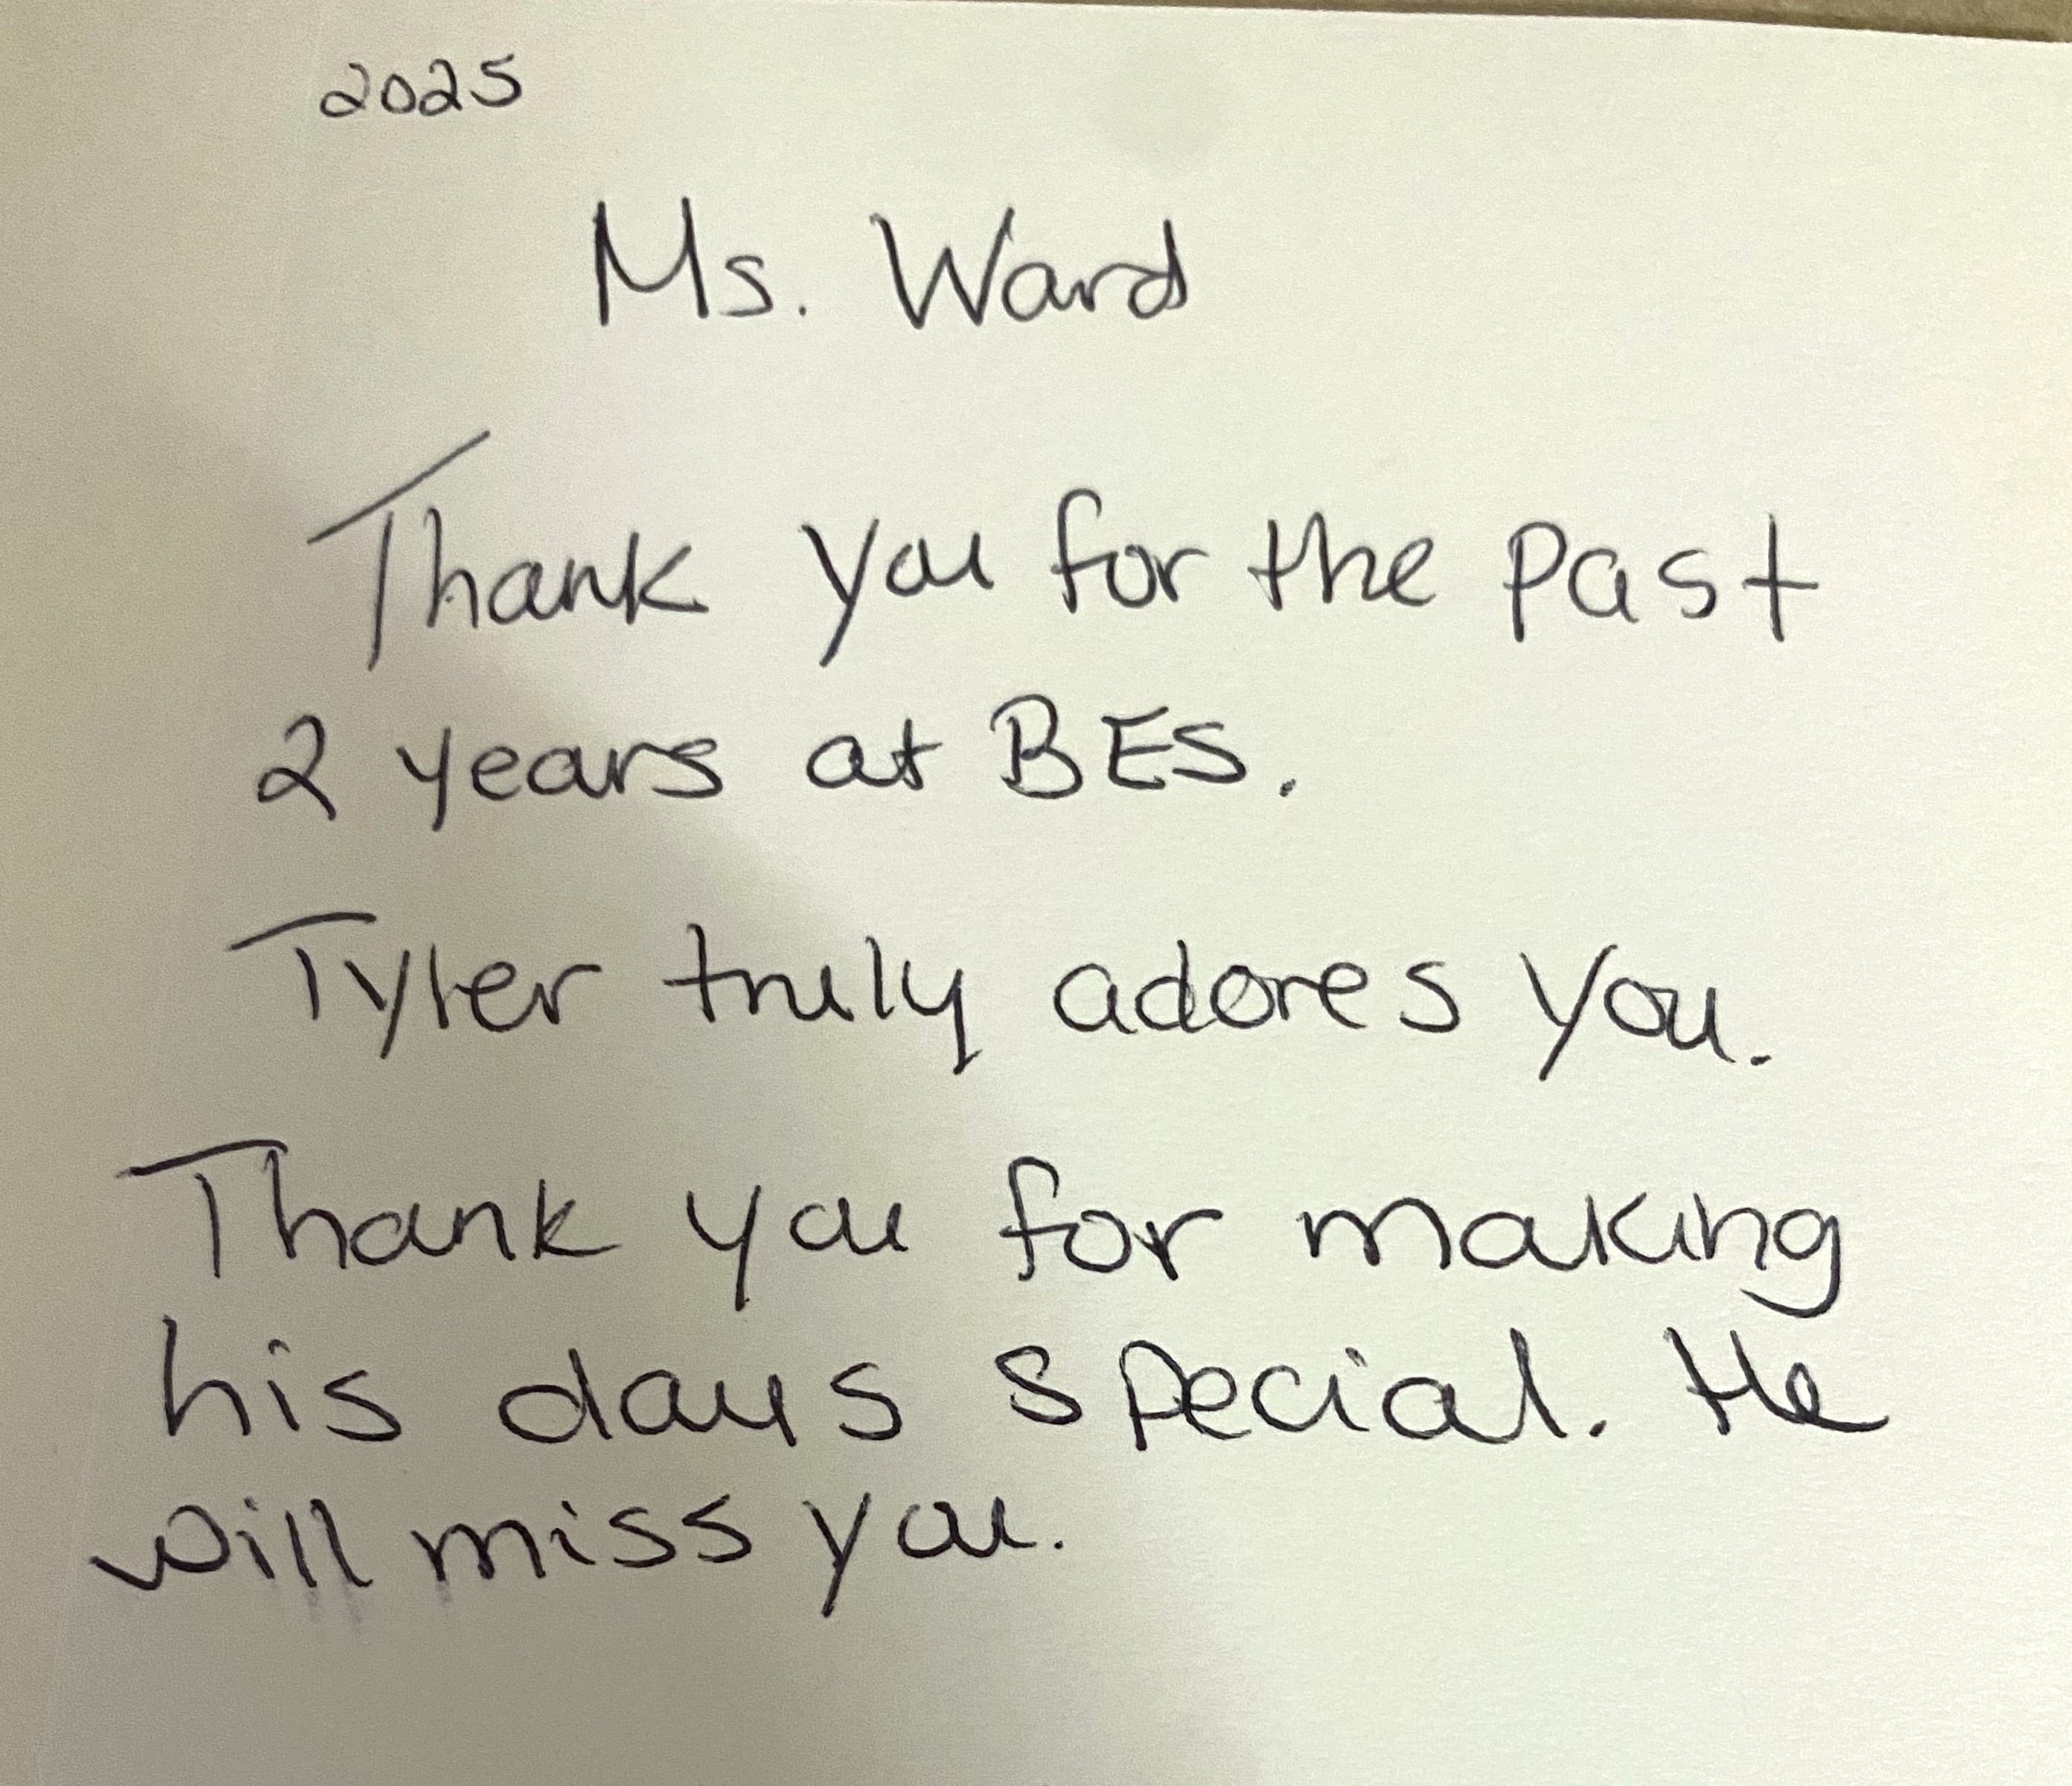 2025
Ms. Ward
Thank you for the past
2 years at BES.
Tyler truly adores you.
Thank you for making
his days special. He
will miss you.